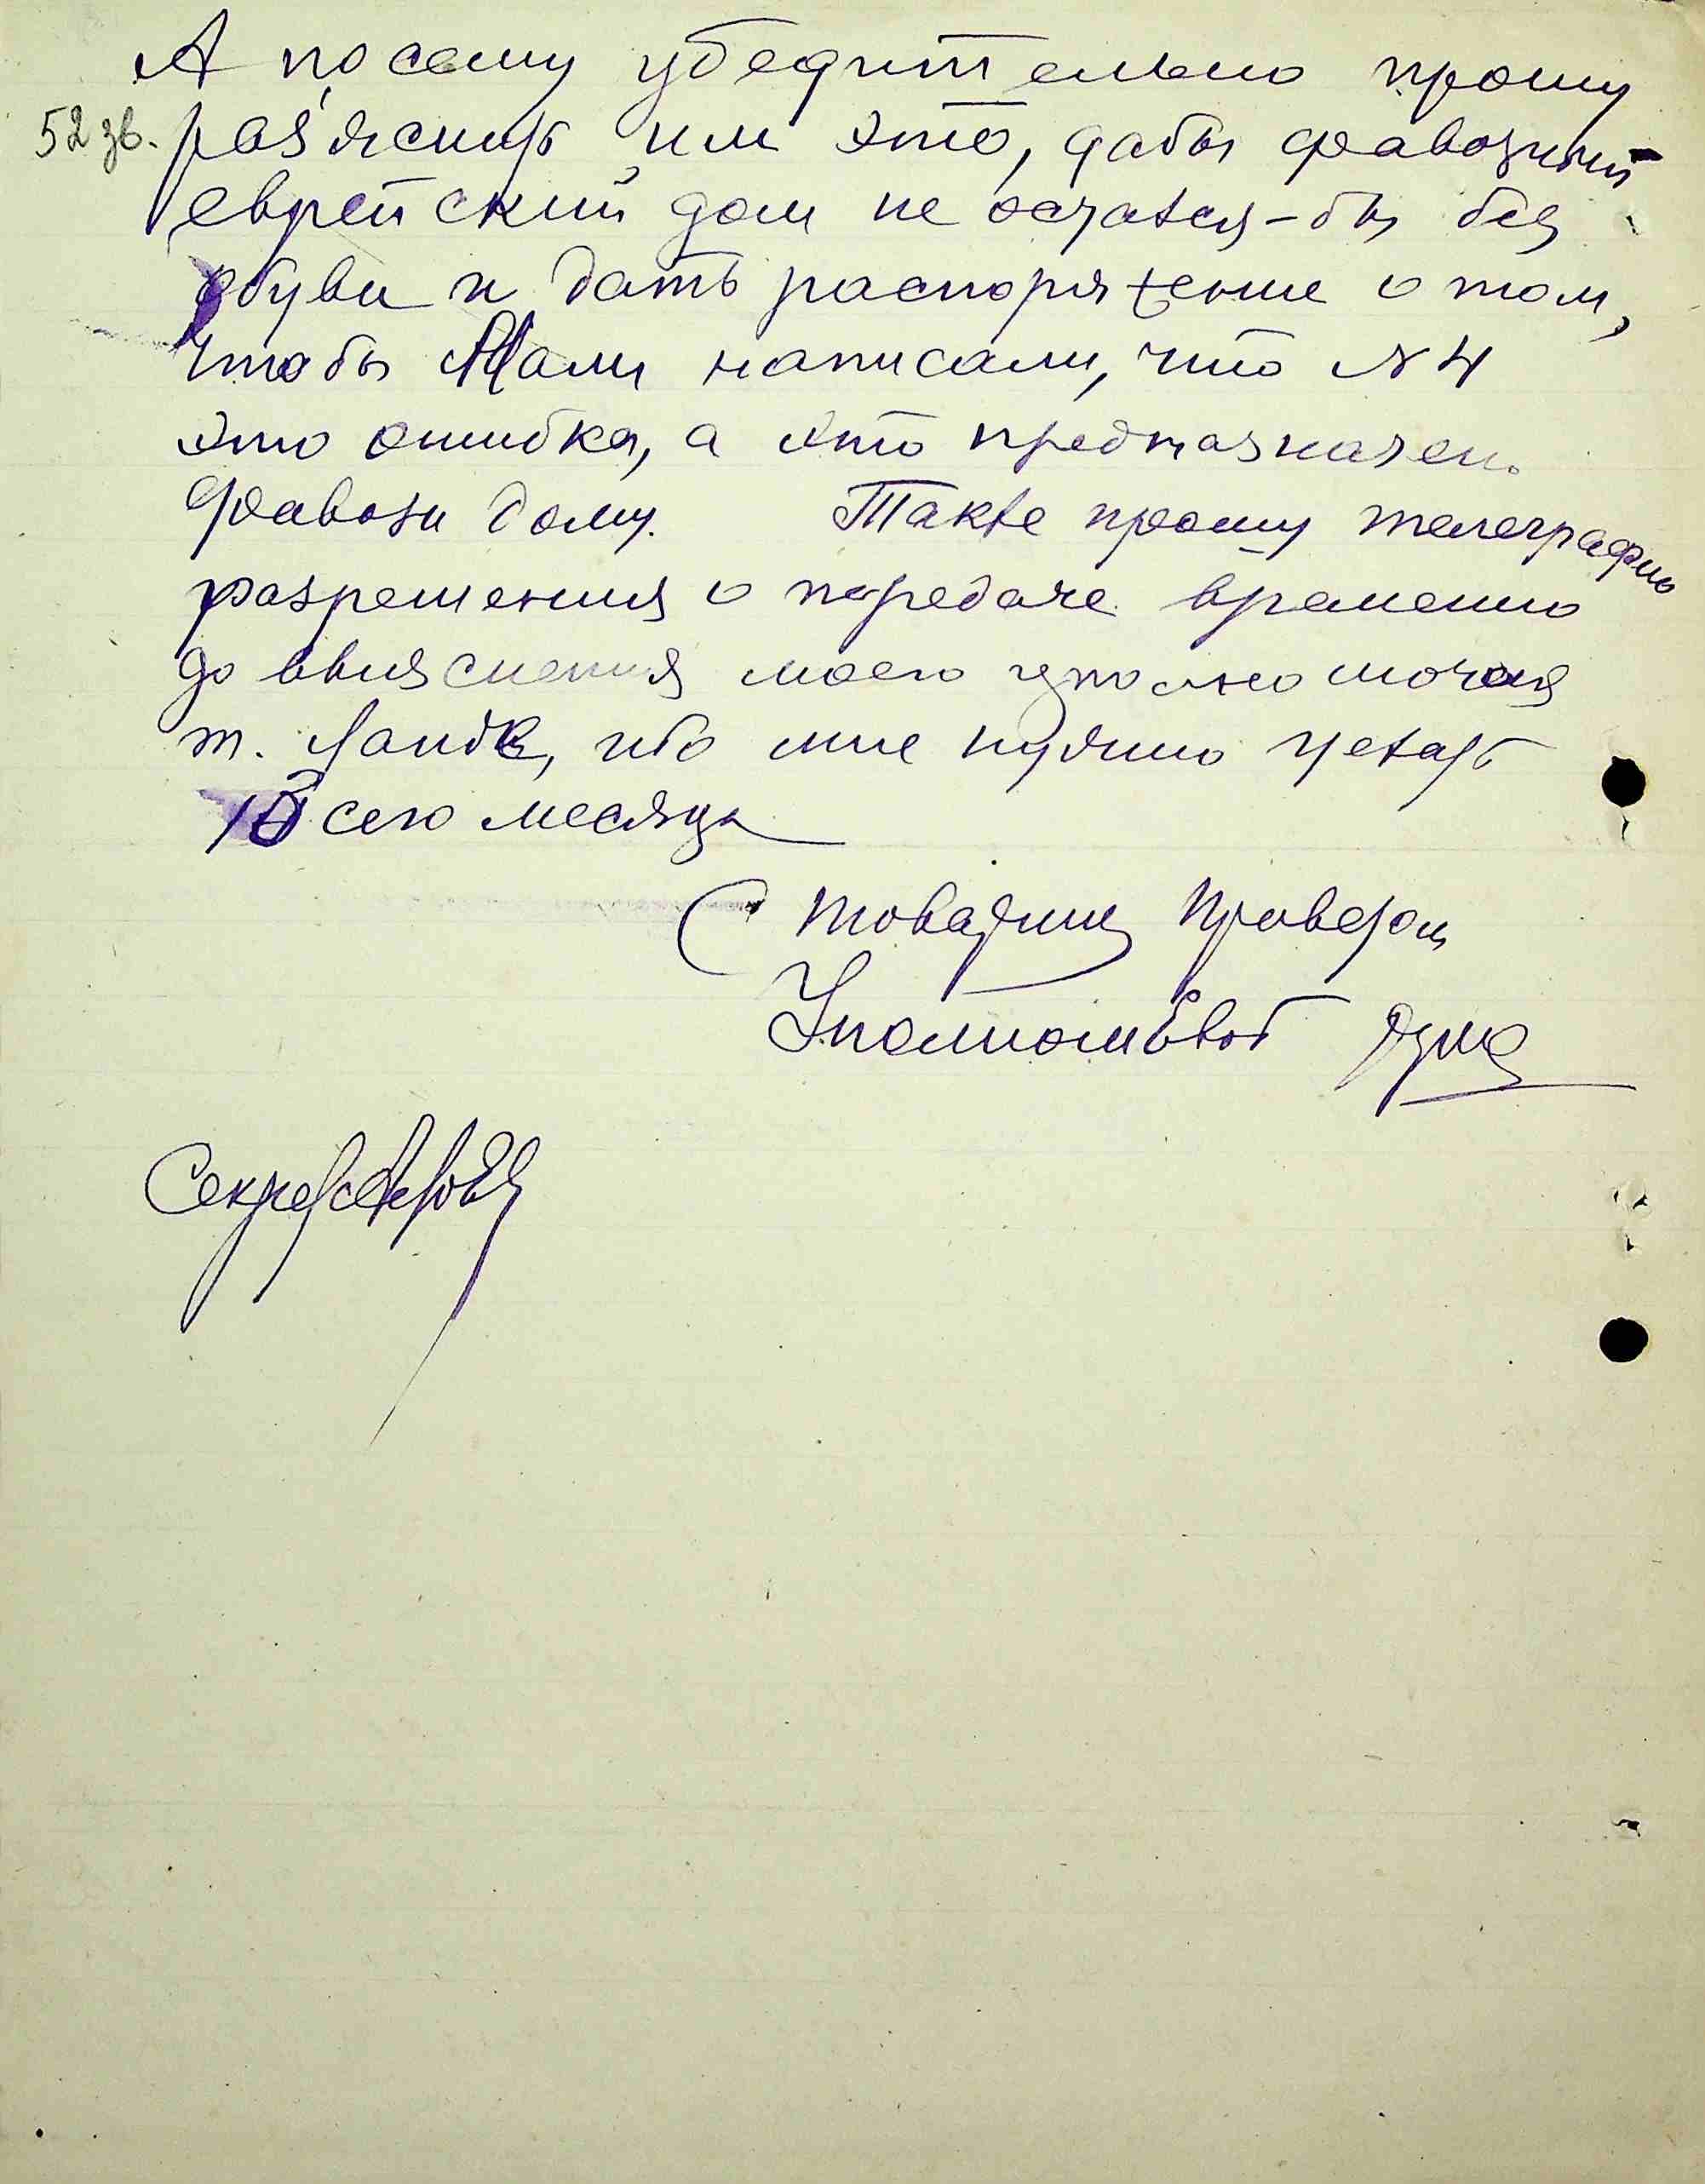 А посему убедительно прошу
52 зв. раз'яснить им это, дабы фавозный
еврейский дом не остался-бы без
обуви и дать распоряжение о том,
чтобы Вам написали, что № 4
это ошибка, а это предназначен.
Фавозн дому. Также прошу телеграфно
разрешения о передаче временно
до выяснения моего уполномочия
т. Ланде, ибо мне нужно уехать
10 сего месяца
С товарищ приветом
УполномЕвот
Секретарь